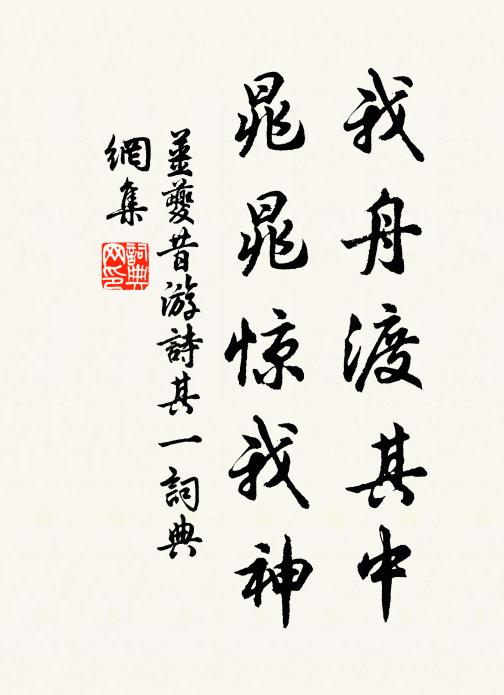 我舟渡其中
晁晁惊我神
姜夔昔游詩其一詞典
網集
詞典網印